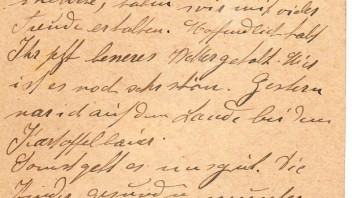 haben wir mit vieler
Freude erhalten. Hoffentlich habt
Ihr besseres Wetter gehabt. Hier
ist es noch sehr schön. Gestern
war ich auf dem Lande bei dem
Kartoffelbauer.
Sonst geht es uns gut. Die
Kinder gesund